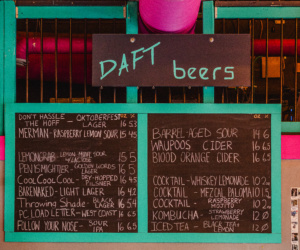 DAFT beers
DON'T HASSLE - OKTOBERFEST OZ $
THE HOFF LAGER 16 53
MERMAN - RASPBERRY LEMON SOUR 15 45
LEMONGRAB - 15 5
PENISMIGHTIER - GOLDEN LAGER 16 5
Cool Cool Cool - DRY-HOPPED PILSNER 16 45
BARENAKED - LIGHT LAGER 16 42
Throwing Shade - BLACK LAGER 16 54
PC LOAD LETTER - WEST COAST 16 65
FOLLOW YOUR NOSE - 16 65
OZ $
BARREL AGED SOUR 14 6
WAUPOOS CIDER 16 65
BLOOD ORANGE CIDER 16 65
COCKTAIL - WHISKEY LEMONADE 10 2
COCKTAIL - MEZCAL PALOMA 10 15
COCKTAIL - RASPBERRY MOJITO 10 2
KOMBUCHA - STRAWBERRY LEMONADE 12 0
ICED TEA - BLACK TEA LEMON 12 0